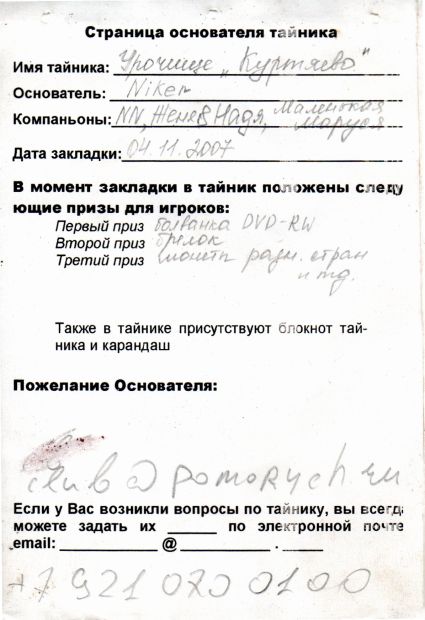 Страница основателя тайника
Имя тайника: Урочище „Куртяево"
Основатель: Niker
Компаньоны: NN, Женя& Надя, Маленькая Маруся
Дата закладки: 04.11.2007
В момент закладки в тайник положены следу
ющие призы для игроков:
Первый приз болванка DVD-RW
Второй приз брелок
Третий приз монеты разн. стран
и тд.
Также в тайнике присутствуют блокнот тай-
ника и карандаш
Пожелание Основателя:
club@pomorych.ru
Если у Вас возникли вопросы по тайнику, вы всегда
можете задать их _____ по электронной почте
email: __________ @ _________ . ____
+7 921 070 0100